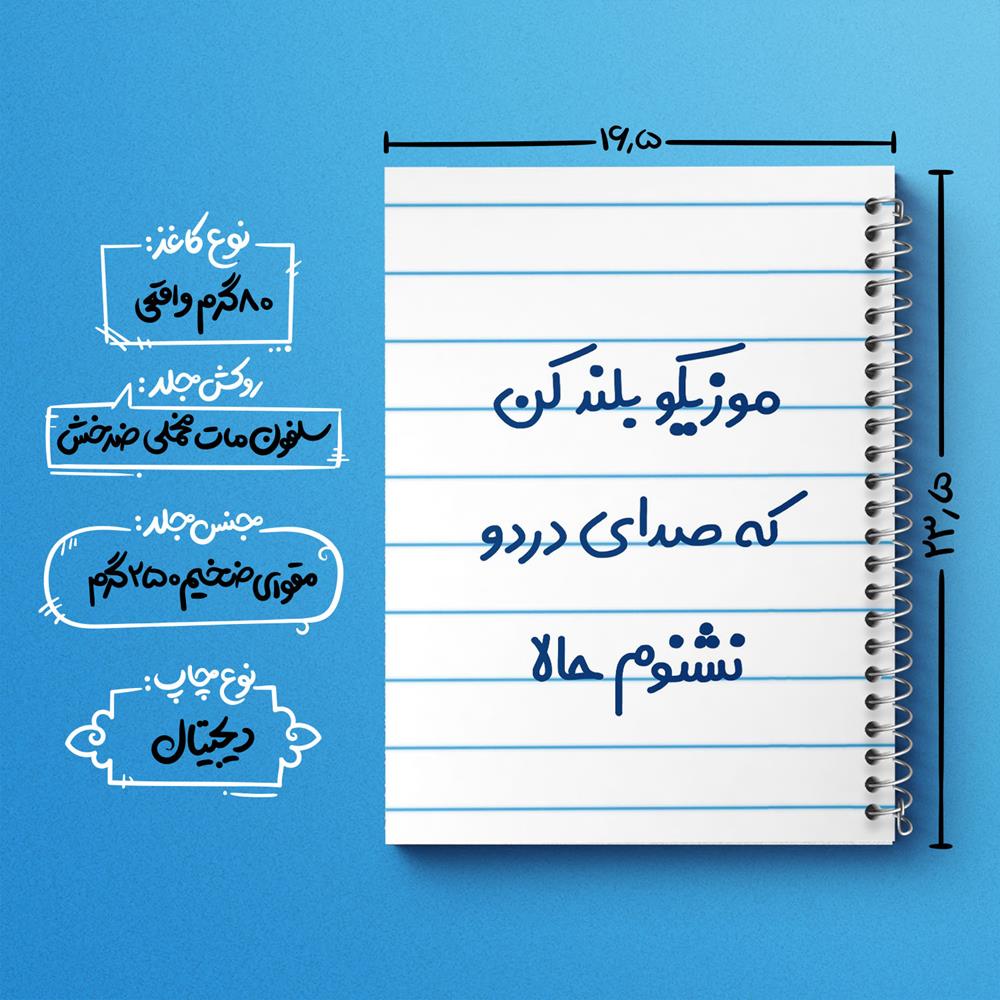 ۱۶٫۵
۲۳٫۵
موزیکو بلند کن
که صدای دردو
نشنوم حالا
نوع کاغذ:
۸۰گرم واقعی
روکش جلد:
سلفون مات مخملی ضدخش
جنس جلد:
مقوای ضخیم ۲۵۰گرم
نوع چاپ:
دیجیتال